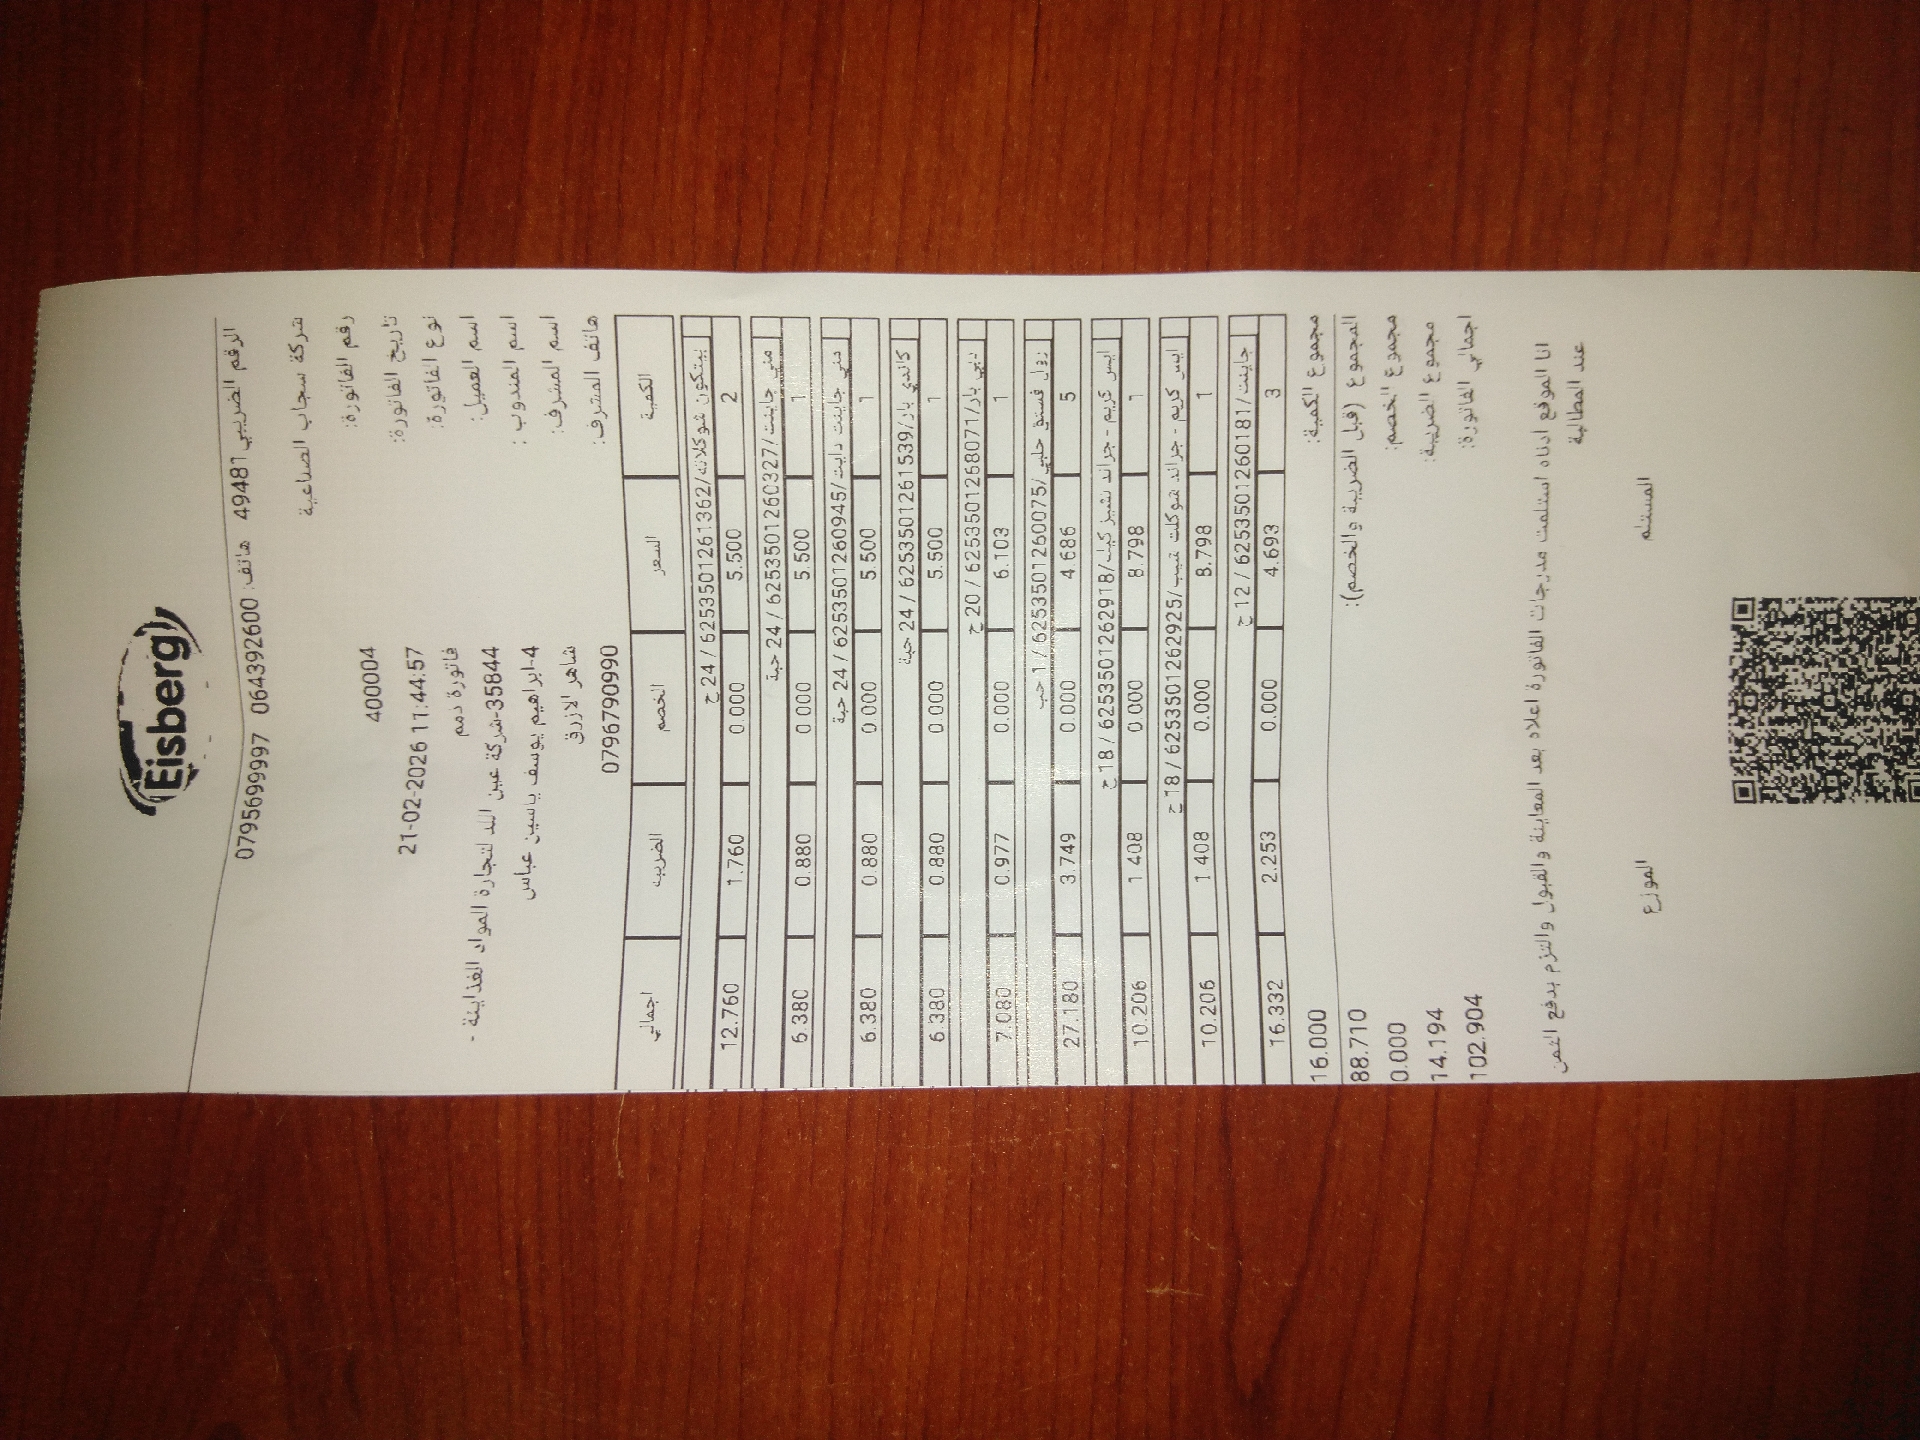 Eisberg
الرقم الضريبي 49481 هاتف: 0643926000 0795699997
شركة سجاب الصناعية
رقم الفاتورة: 400004
تاريخ الفاتورة: 21-02-2026 11:44:57
نوع الفاتورة: فاتورة ذمم
اسم العميل: 35844-شركة عين اللد لتجارة المواد الغذاينة -
اسم المندوب : 4-ابراهيم يوسف ياسين عباس
اسم المشرف: شاهر الازرق
هاتف المشرف: 0796790990
الكمية السعر الخصم الضريبه اجمالي
بيتكون شوكلاته/6253501261362 / 24 ح
2 5.500 0.000 1.760 12.760
مني جاينت/6253501260327 / 24 حبة
1 5.500 0.000 0.880 6.380
مني جاينت دايت/6253501260945 / 24 حبة
1 5.500 0.000 0.880 6.380
كاندي بار/6253501261539 / 24 حبة
1 5.500 0.000 0.880 6.380
بار/6253501268071 / 20 ح
1 6.103 0.000 0.977 7.080
رول فستق حلبي/6253501260075 / 1 حب
5 4.686 0.000 3.749 27.180
ايس كريم - جراند تشيز كيك/6253501262918 / 18 ح
1 8.798 0.000 1.408 10.206
ايس كريم - جراند شوكلت شيب/6253501262925 / 18 ح
1 8.798 0.000 1.408 10.206
جاينت/6253501260181 / 12 ح
3 4.693 0.000 2.253 16.332
مجموع الكمية: 16.000
المجموع (قبل الضريبة و الخصم): 88.710
مجموع الخصم: 0.000
مجموع الضريبة: 14.194
اجمالي الفاتورة: 102.904
انا الموقع ادناه استلمت مدرجات الفاتورة اعلاه بعد المعاينة والقبول والتزم بدفع الثمن
عند المطالبة
المستلم الموزع